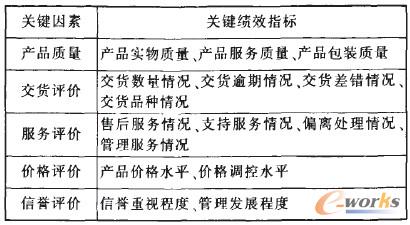 关键因素 关键绩效指标
产品质量 产品实物质量、产品服务质量、产品包装质量
交货评价 交货数量情况、交货逾期情况、交货差错情况、
交货品种情况
服务评价 售后服务情况、支持服务情况、偏离处理情况、
管理服务情况
价格评价 产品价格水平、价格调控水平
信誉评价 信誉重视程度、管理发展程度
e-works